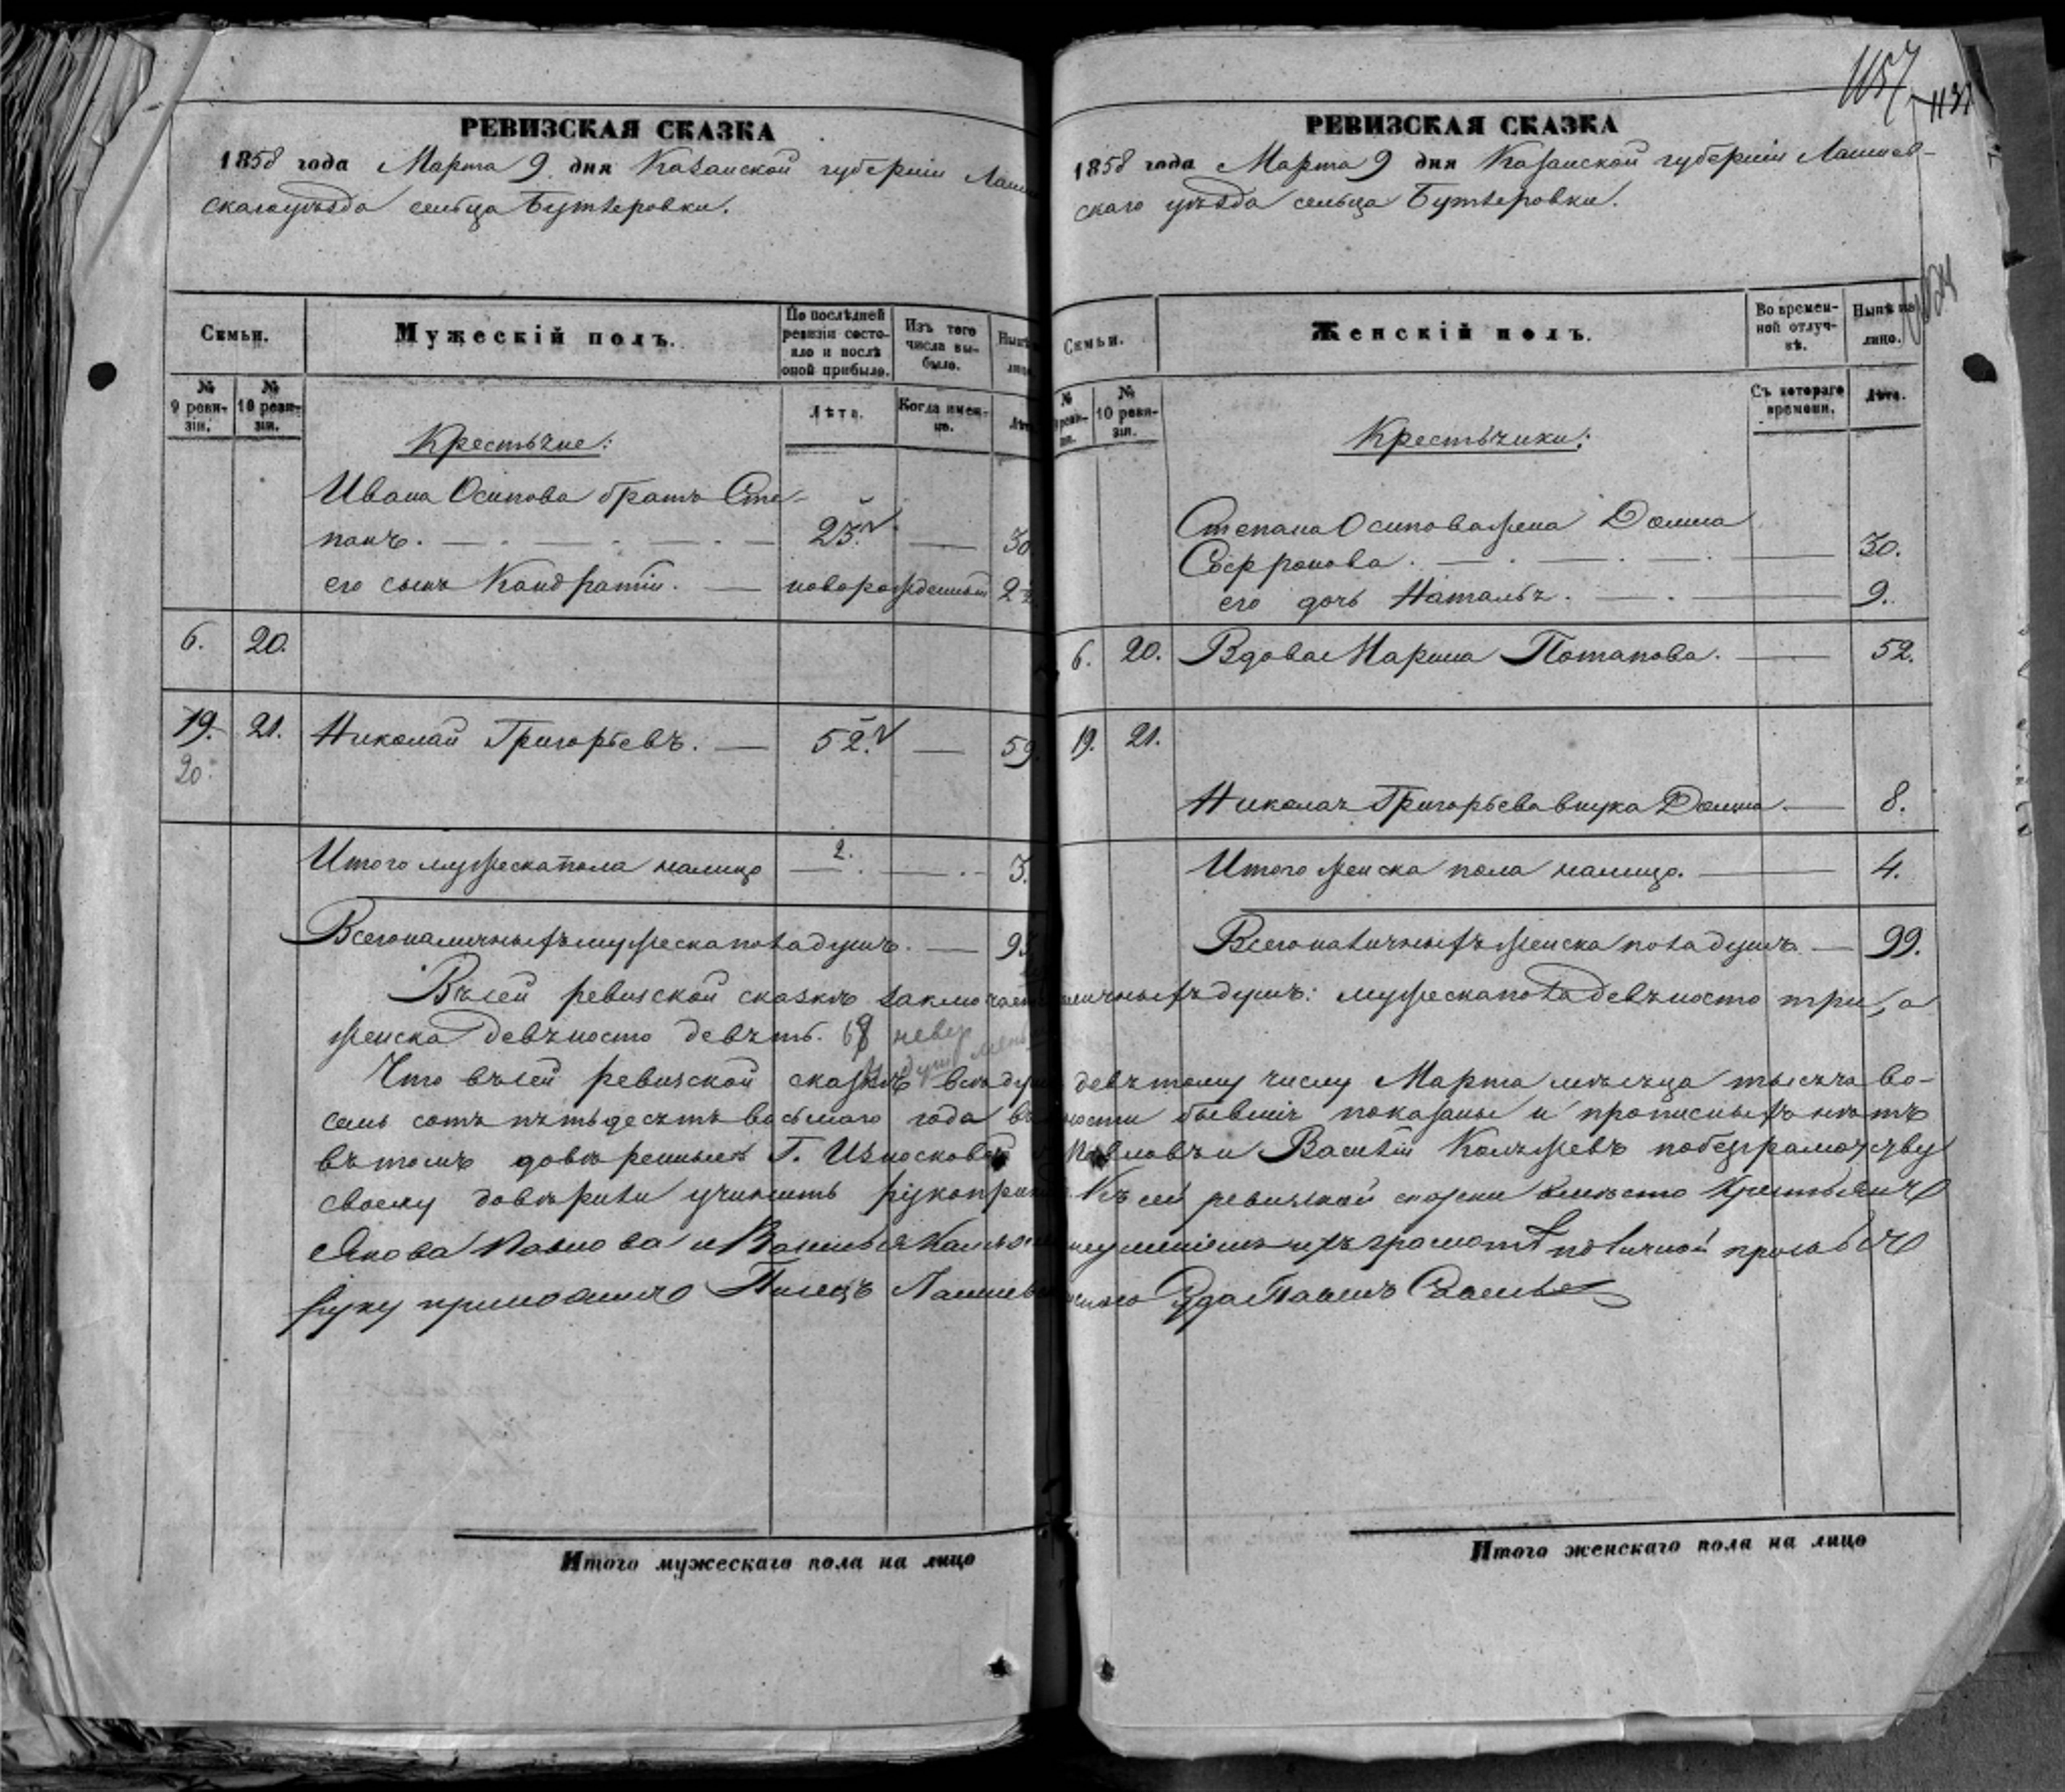 РЕВИЗСКАЯ СКАЗКА
1858 года Марта 9 дня Казанской губернiи Лаи
скаго уѣзда сельца Бутлеровки.
Семьи.
Мужескiй полъ.
По послѣдней ревизiи состояло и послѣ оной прибыло.
Изъ того числа выбыло.
Нынѣ
лицо
№ 9 ревизiи.
№ 10 ревизiи.
Лѣта.
Когда именно.
Лѣт
Крестьяне:
Ивана Осипова братъ Сте-
панъ. 23. 30
его сынъ Кандратiй. новорожденный 2
6. 20.
19. 21. Николай Григорьевъ. 52. 59.
20.
Итого мужеска пола налицо 2. 3.
Всего наличныхъ мужеска пола душъ. 93
РЕВИЗСКАЯ СКАЗКА
1157
1858 года Марта 9 дня Казанской губернiи Лаишев-
скаго уѣзда сельца Бутлеровки.
Семьи.
Женскiй полъ.
Во временной отлучкѣ.
Нынѣ на лицо.
№ 10 ревизiи.
Съ котораго времени.
Лѣта.
Крестьянки:
Степана Осипова жена Домна
Софронова. 30.
его дочь Наталья. 9.
6. 20. Вдова Марина Потапова. 52.
19. 21.
Николая Григорьева внука Домна 8.
Итого женска пола налицо. 4.
Всего наличныхъ женска пола душъ 99.
Въ сей ревизской сказкѣ заключает наличныхъ душъ: мужеска пола девяносто три, а
женска девяносто девять.
Что въ сей ревизской сказкѣ всѣ душ девятому числу Марта мѣсяца тысяча во-
семь сотъ пятьдесятъ восьмаго года въ ности бывшiя показаны и прописныхъ нѣтъ
въ томъ довѣренные Г. Износковой Павловъ и Василiй по безграмотству
своему довѣрили учинить рукопри Къ сей ревизской сказки вместо Крестьянъ
Якова Павлова и Василья неуменiемъ ихъ грамотѣ по личной просьбѣ
руку приложилъ Писецъ Лаишев Суда Павелъ
Итого мужескаго пола на лицо
Итого женскаго пола на лицо